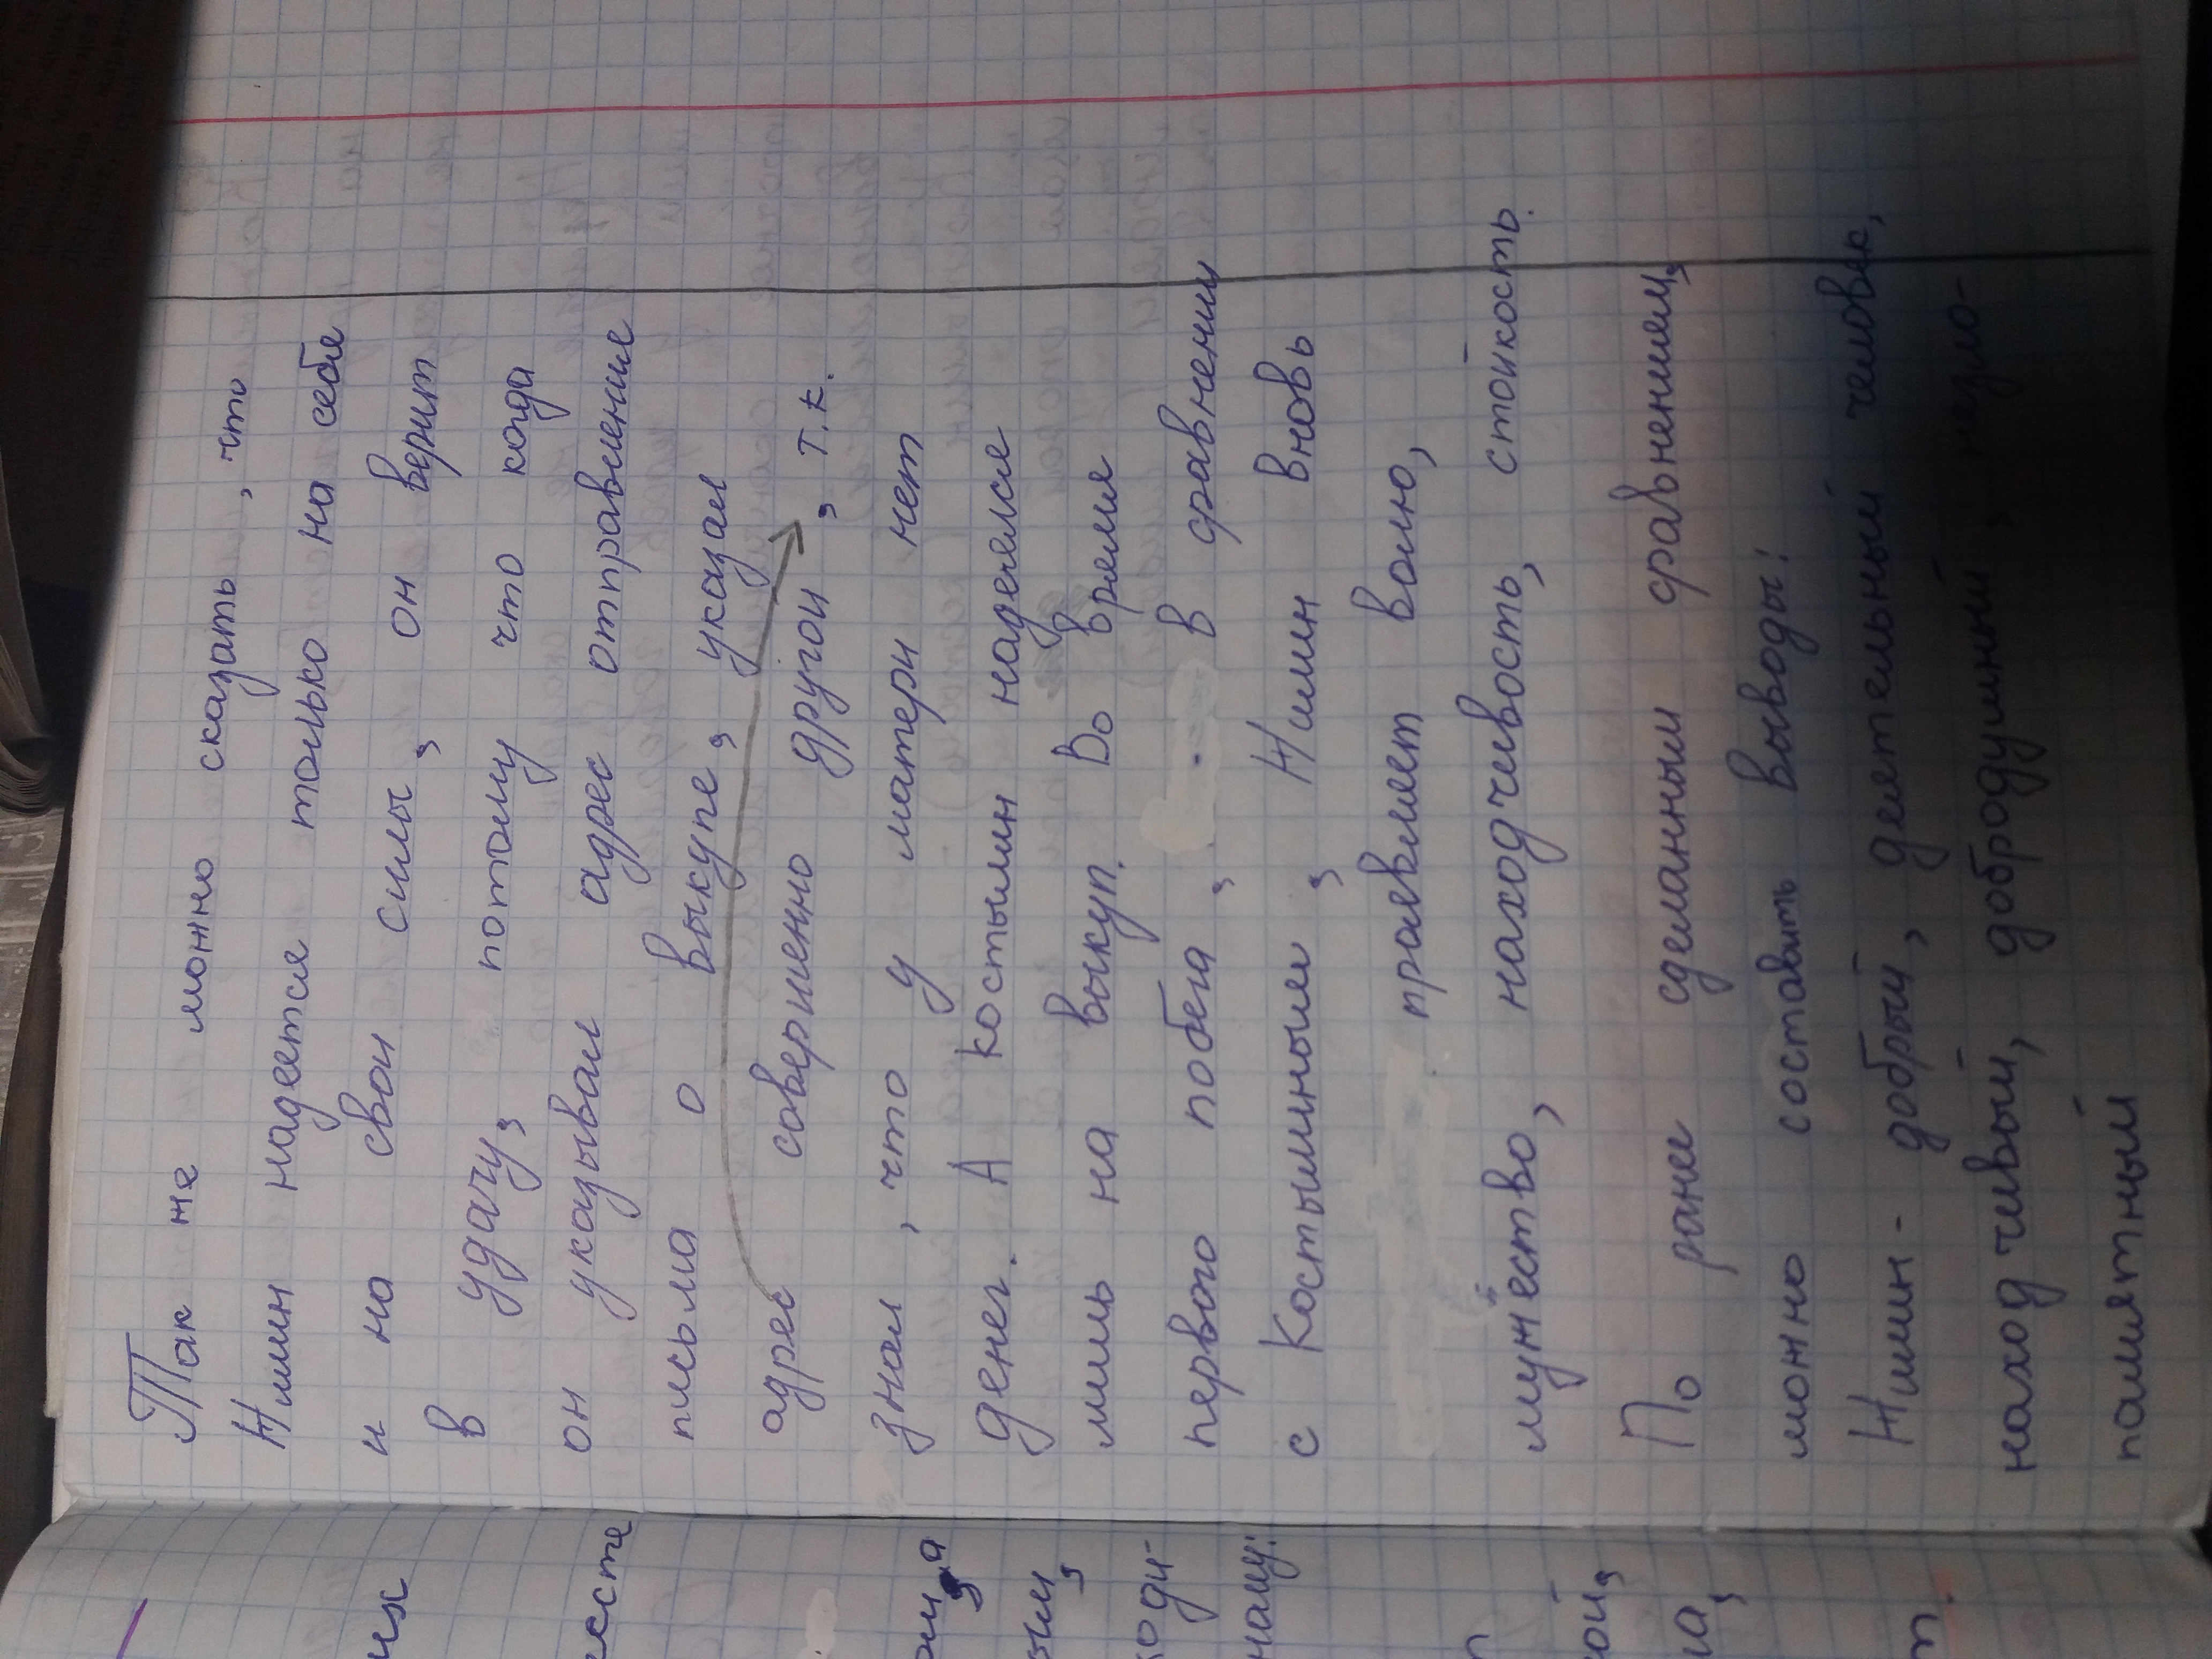 Так же можно сказать, что
Жилин надеется только на себя
и на свои силы, он верит
в удачу, потому что когда
он указывал адрес отправления
письма о выкупе, указал
адрес совершенно другой, т.к.
знал, что у матери нет
денег. А костылин надеялся
лишь на выкуп. Во время
первого побега, в сравнении
с Костылиным, Жилин вновь
проявляет волю,
мужество, находчивость, стойкость.
По ранее сделанным сравнениям,
можно составить выводы:
Жилин - добрый, деятельный человек,
находчивый, добродушный, незло-
памятный
их
есте
ым,
оди-
ой,